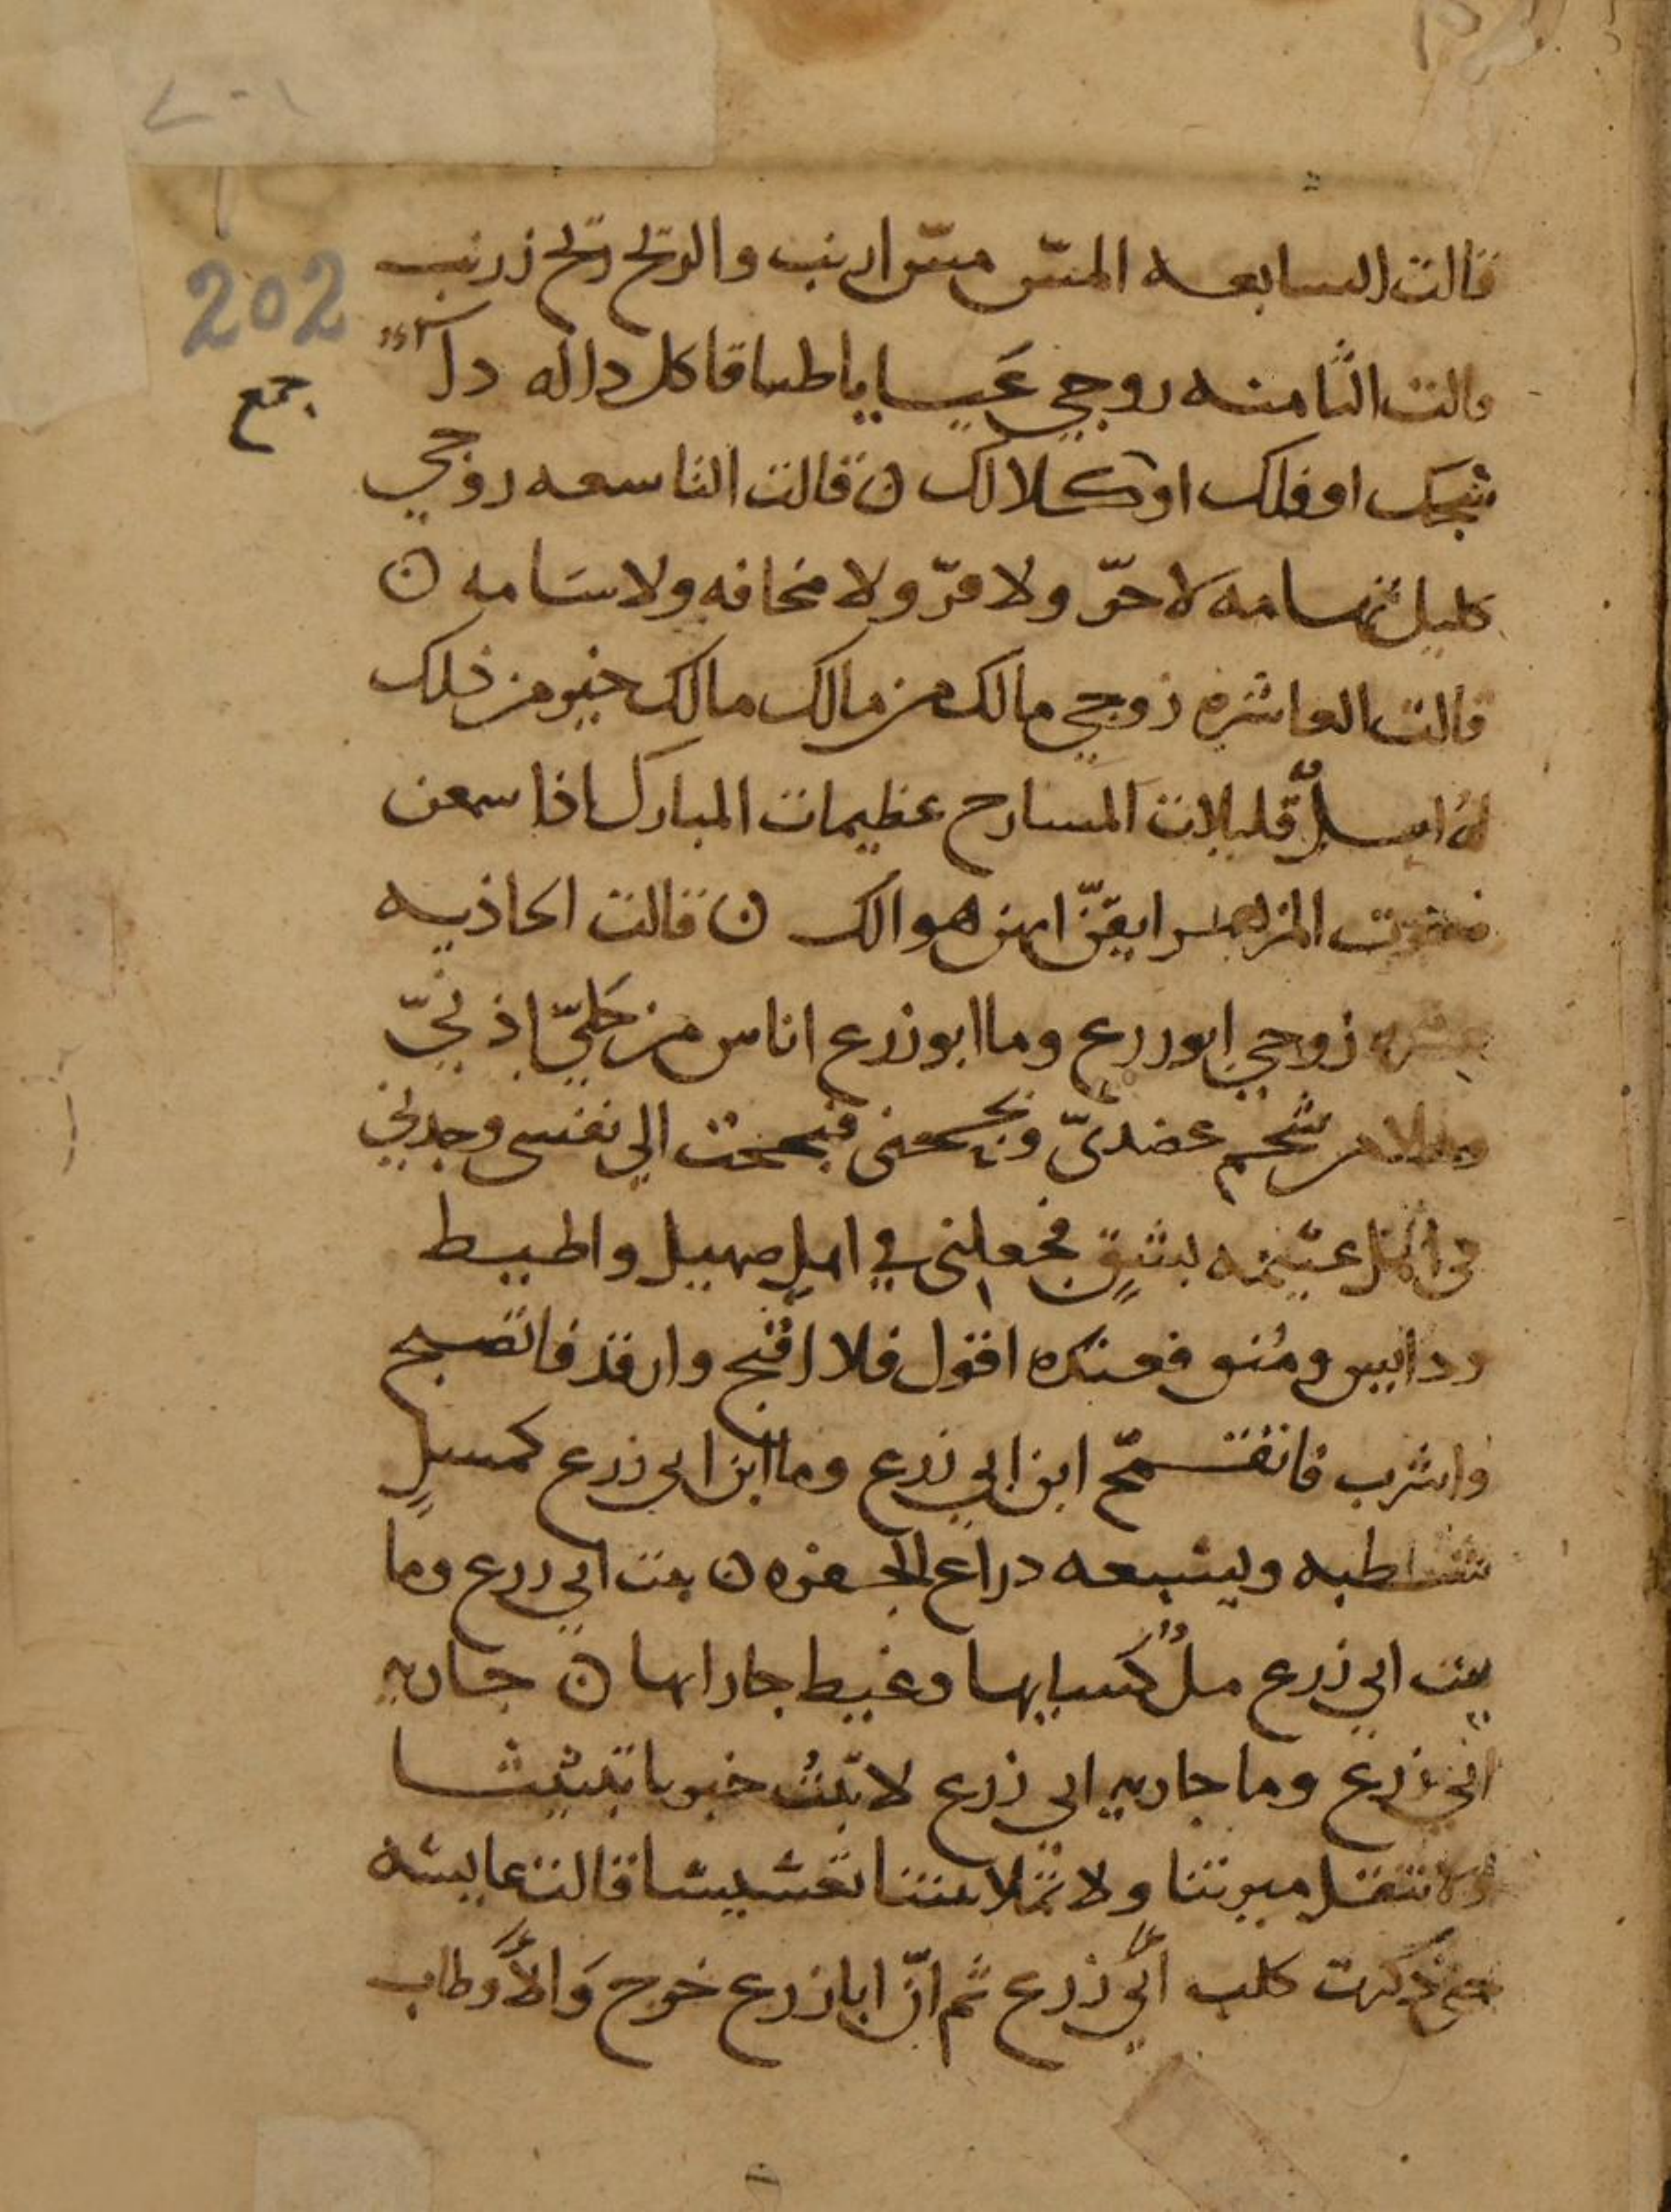 202
جمع
قالت السابعه المس مس ارنب والريح ريح زرنب
قالت الثامنه روجي عيايا طباقا كل دا له دا
شجك او فلك او كلا لك ن قالت التاسعه روجي
كليل تهامه لا حرّ ولا قرّ ولا مخافه ولا سَامه ن
قالت العاشره زوجي مالك من مالك مالك خير من ذلك
له ابلٌ قليلات المسارح عظيمات المبارك اذا سمعن
صوت المزهر ايقنّ انهن هوالك ن قالت الحاديه
عشره زوجي ابو زرع وما ابو زرع اناس من حَليّ اذنيّ
وملا من شحم عضديّ وبححنى فبجحت الي نفسى وجدني
في اهل غنيمه بشقٍ فجعلنى في اهل صهيل واطيط
ودايس ومُنق فعنده اقول فلا اقبح وارقد فاتصبح
واشرب فاتقمح ابن ابي زرع وما ابن ابي زرع كمسلِ
شطبه ويشبعه دراع الجفره ن بنت ابي زرع وما
بنت ابي زرع ملُ كسايها وغيط جارتها ن جاريه
ابي زرع وما جاريه ابي زرع لا تبثُ خبرنا تبثيثا
ولا تنقل ميرتنا ولا تملا بيتنا تعشيشا قالت عايشه
حتى ذكرت كلب ابي زرع ثم انّ ابا زرع خرج وَالأَوطاب